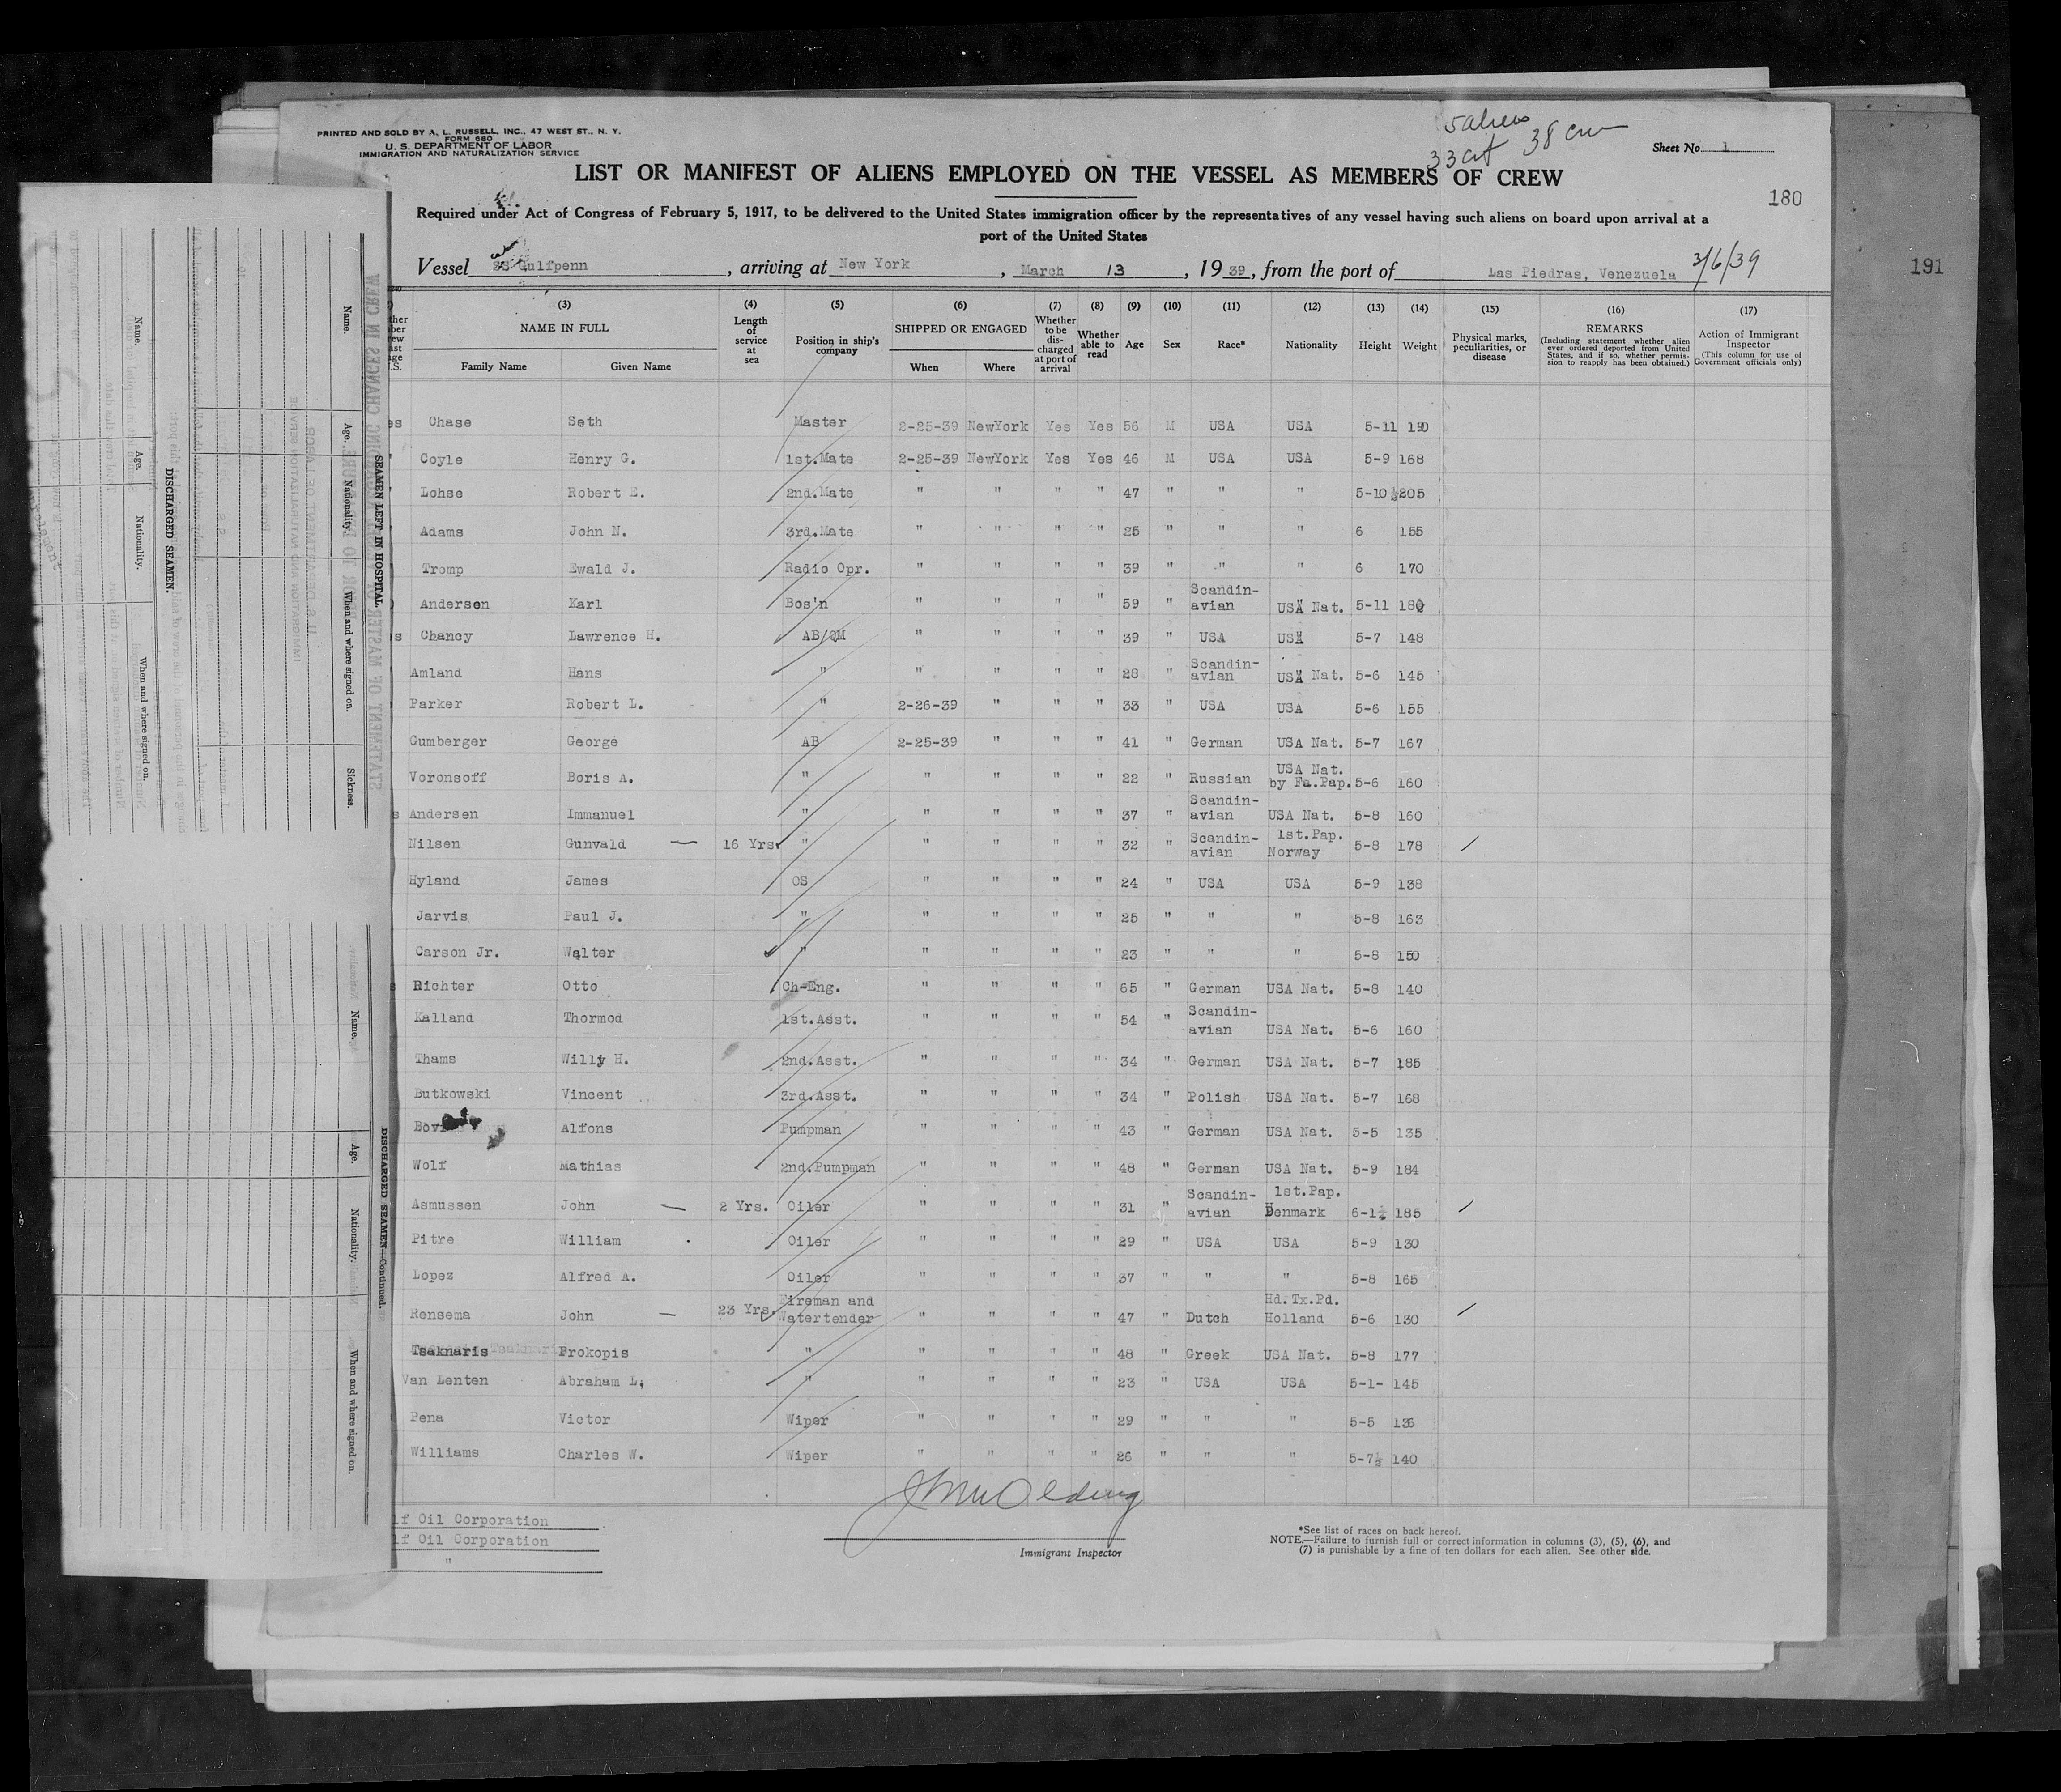 PRINTED AND SOLD BY A. L. RUSSELL, INC., 47 WEST ST., N. Y.
FORM 680
U. S. DEPARTMENT OF LABOR
IMMIGRATION AND NATURALIZATION SERVICE
5 aliens
33 cit 38 crew
Sheet No. 1
LIST OR MANIFEST OF ALIENS EMPLOYED ON THE VESSEL AS MEMBERS OF CREW
180
Required under Act of Congress of February 5, 1917, to be delivered to the United States immigration officer by the representatives of any vessel having such aliens on board upon arrival at a
port of the United States
Vessel SS Gulfpenn, arriving at New York, March 13, 1939, from the port of Las Piedras, Venezuela 3/6/39
191
(3) (4) (5) (6) (7) (8) (9) (10) (11) (12) (13) (14) (15) (16) (17)
NAME IN FULL Family Name Given Name
Length of service at sea
Position in ship's company
SHIPPED OR ENGAGED When Where
Whether to be discharged at port of arrival
Whether able to read
Age Sex Race* Nationality Height Weight
Physical marks, peculiarities, or disease
REMARKS (Including statement whether alien ever ordered deported from United States, and if so, whether permission to reapply has been obtained.)
Action of Immigrant Inspector (This column for use of Government officials only)
es Chase Seth Master 2-25-39 NewYork Yes Yes 56 M USA USA 5-11 190
Coyle Henry G. 1st.Mate 2-25-39 NewYork Yes Yes 46 M USA USA 5-9 168
Lohse Robert E. 2nd.Mate " " " " 47 " " " 5-10½ 205
Adams John N. 3rd.Mate " " " " 25 " " " 6 155
Tromp Ewald J. Radio Opr. " " " " 39 " " " 6 170
Andersen Karl Bos'n " " " " 59 " Scandin-avian USA Nat. 5-11 180
s Chancy Lawrence H. AB/QM " " " " 39 " USA USA 5-7 148
Amland Hans " " " " " 28 " Scandin-avian USA Nat. 5-6 145
Parker Robert L. " 2-26-39 " " " 33 " USA USA 5-6 155
Gumberger George AB 2-25-39 " " " 41 " German USA Nat. 5-7 167
Voronsoff Boris A. " " " " " 22 " Russian USA Nat. by Fa.Pap. 5-6 160
s Andersen Immanuel " " " " " 37 " Scandin-avian USA Nat. 5-8 160
Nilsen Gunvald — 16 Yrs. " " " " " 32 " Scandin-avian 1st.Pap. Norway 5-8 178 /
Hyland James OS " " " " 24 " USA USA 5-9 138
Jarvis Paul J. " " " " " 25 " " " 5-8 163
Carson Jr. Walter " " " " " 23 " " " 5-8 150
Richter Otto Ch-Eng. " " " " 65 " German USA Nat. 5-8 140
Kalland Thormod 1st.Asst. " " " " 54 " Scandin-avian USA Nat. 5-6 160
Thams Willy H. 2nd.Asst. " " " " 34 " German USA Nat. 5-7 185
Butkowski Vincent 3rd.Asst. " " " " 34 " Polish USA Nat. 5-7 168
Alfons Pumpman " " " " 43 " German USA Nat. 5-5 135
Wolf Mathias 2nd.Pumpman " " " " 48 " German USA Nat. 5-9 184
Asmussen John — 2 Yrs. Oiler " " " " 31 " Scandin-avian 1st.Pap. Denmark 6-1½ 185 /
Pitre William Oiler " " " " 29 " USA USA 5-9 130
Lopez Alfred A. Oiler " " " " 37 " " " 5-8 165
Rensema John — 23 Yrs. Fireman and Watertender " " " " 47 " Dutch Hd.Tx.Pd. Holland 5-6 130 /
Tsaknaris Prokopis " " " " " 48 " Greek USA Nat. 5-8 177
Van Lenten Abraham L. " " " " " 23 " USA USA 5-1- 145
Pena Victor Wiper " " " " 29 " " " 5-5 135
Williams Charles W. Wiper " " " " 26 " " " 5-7½ 140
lf Oil Corporation
lf Oil Corporation
"
Immigrant Inspector
*See list of races on back hereof.
NOTE.—Failure to furnish full or correct information in columns (3), (5), (6), and
(7) is punishable by a fine of ten dollars for each alien. See other side.
SEAMEN LEFT IN HOSPITAL
Name. Age. Nationality. When and where signed on. Sickness.
DISCHARGED SEAMEN.
Name. Age. Nationality. When and where signed on.
DISCHARGED SEAMEN—Continued.
Name. Age. Nationality. When and where signed on.
STATEMENT OF MASTER REGARDING CHANGES IN CREW